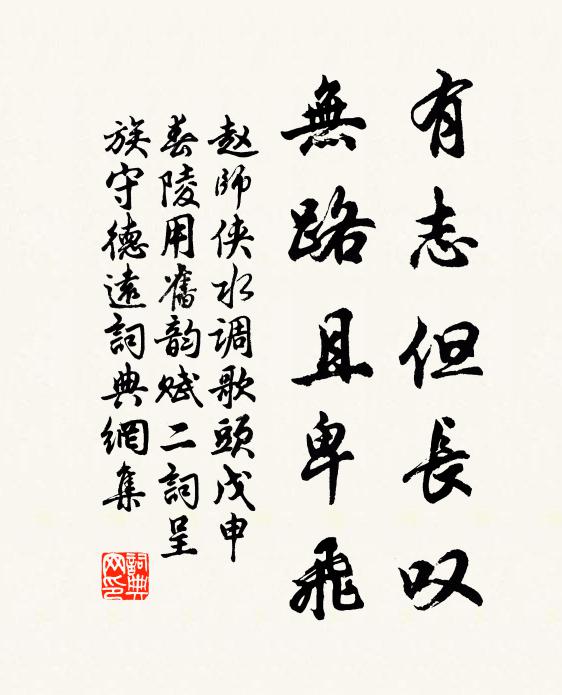 有志但長叹
無路且卑飛
赵師俠水调歌頭戊申
春陵用舊韵赋二詞呈
族守德遠詞典網集
詞典网印